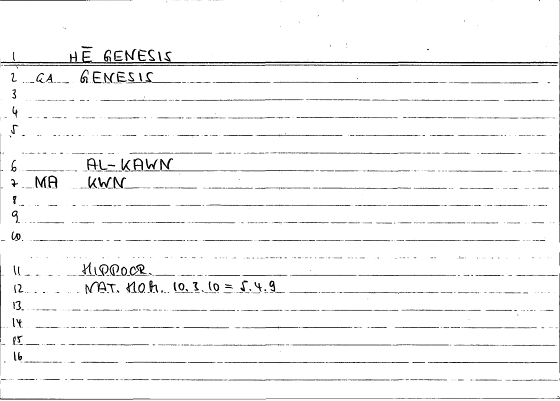 1 HĒ GENESIS
2 GA GENESIS
3
4
5
6 AL-KAWN
7 MA KWN
8
9
10
11 HIPPOCR.
12 NAT. HOM. 10.3.10 = 5.4.9
13
14
15
16